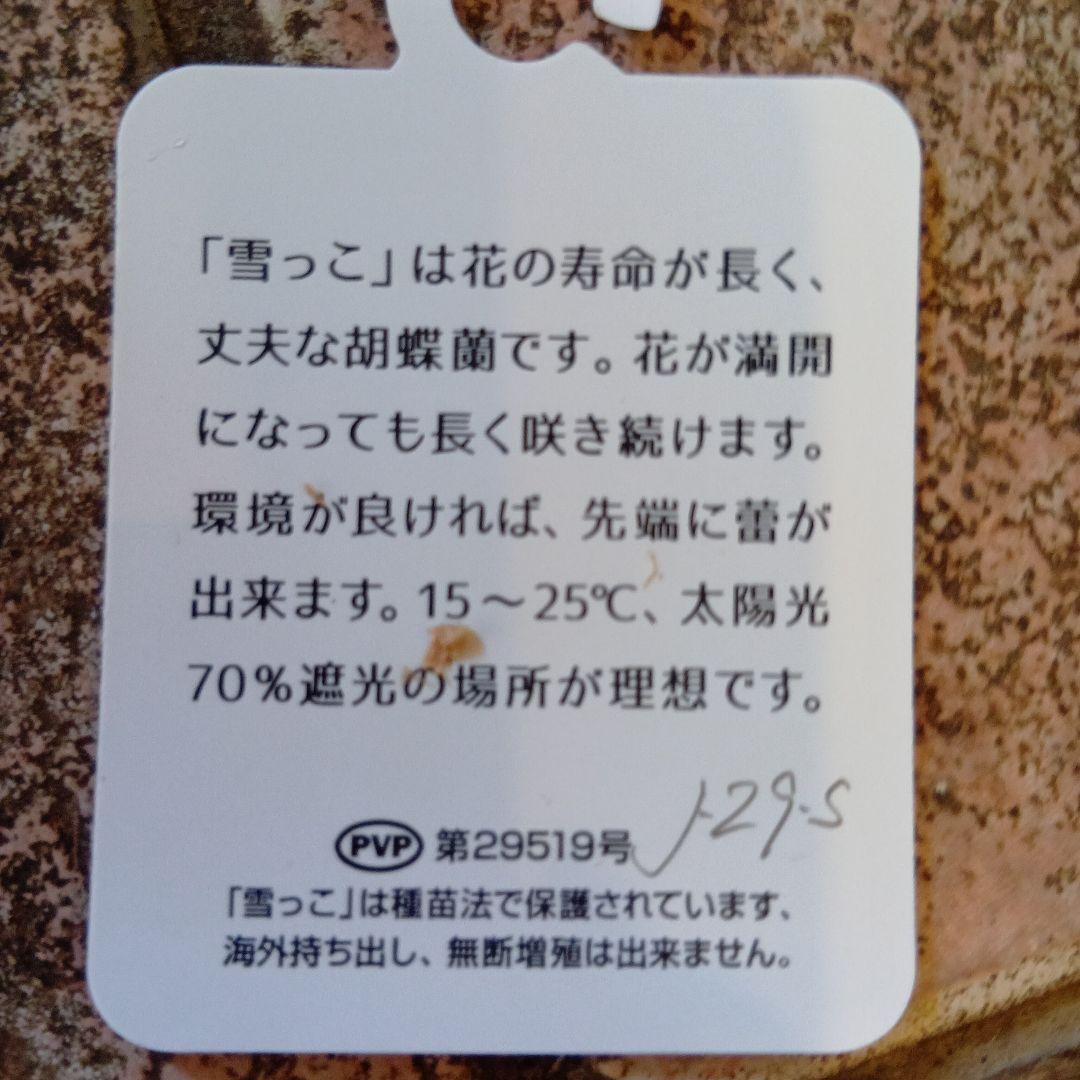 「雪っこ」は花の寿命が長く、
丈夫な胡蝶蘭です。花が満開
になっても長く咲き続けます。
環境が良ければ、先端に蕾が
出来ます。15～25℃、太陽光
70%遮光の場所が理想です。
J-29-S
PVP 第29519号
「雪っこ」は種苗法で保護されています、
海外持ち出し、無断増殖は出来ません。